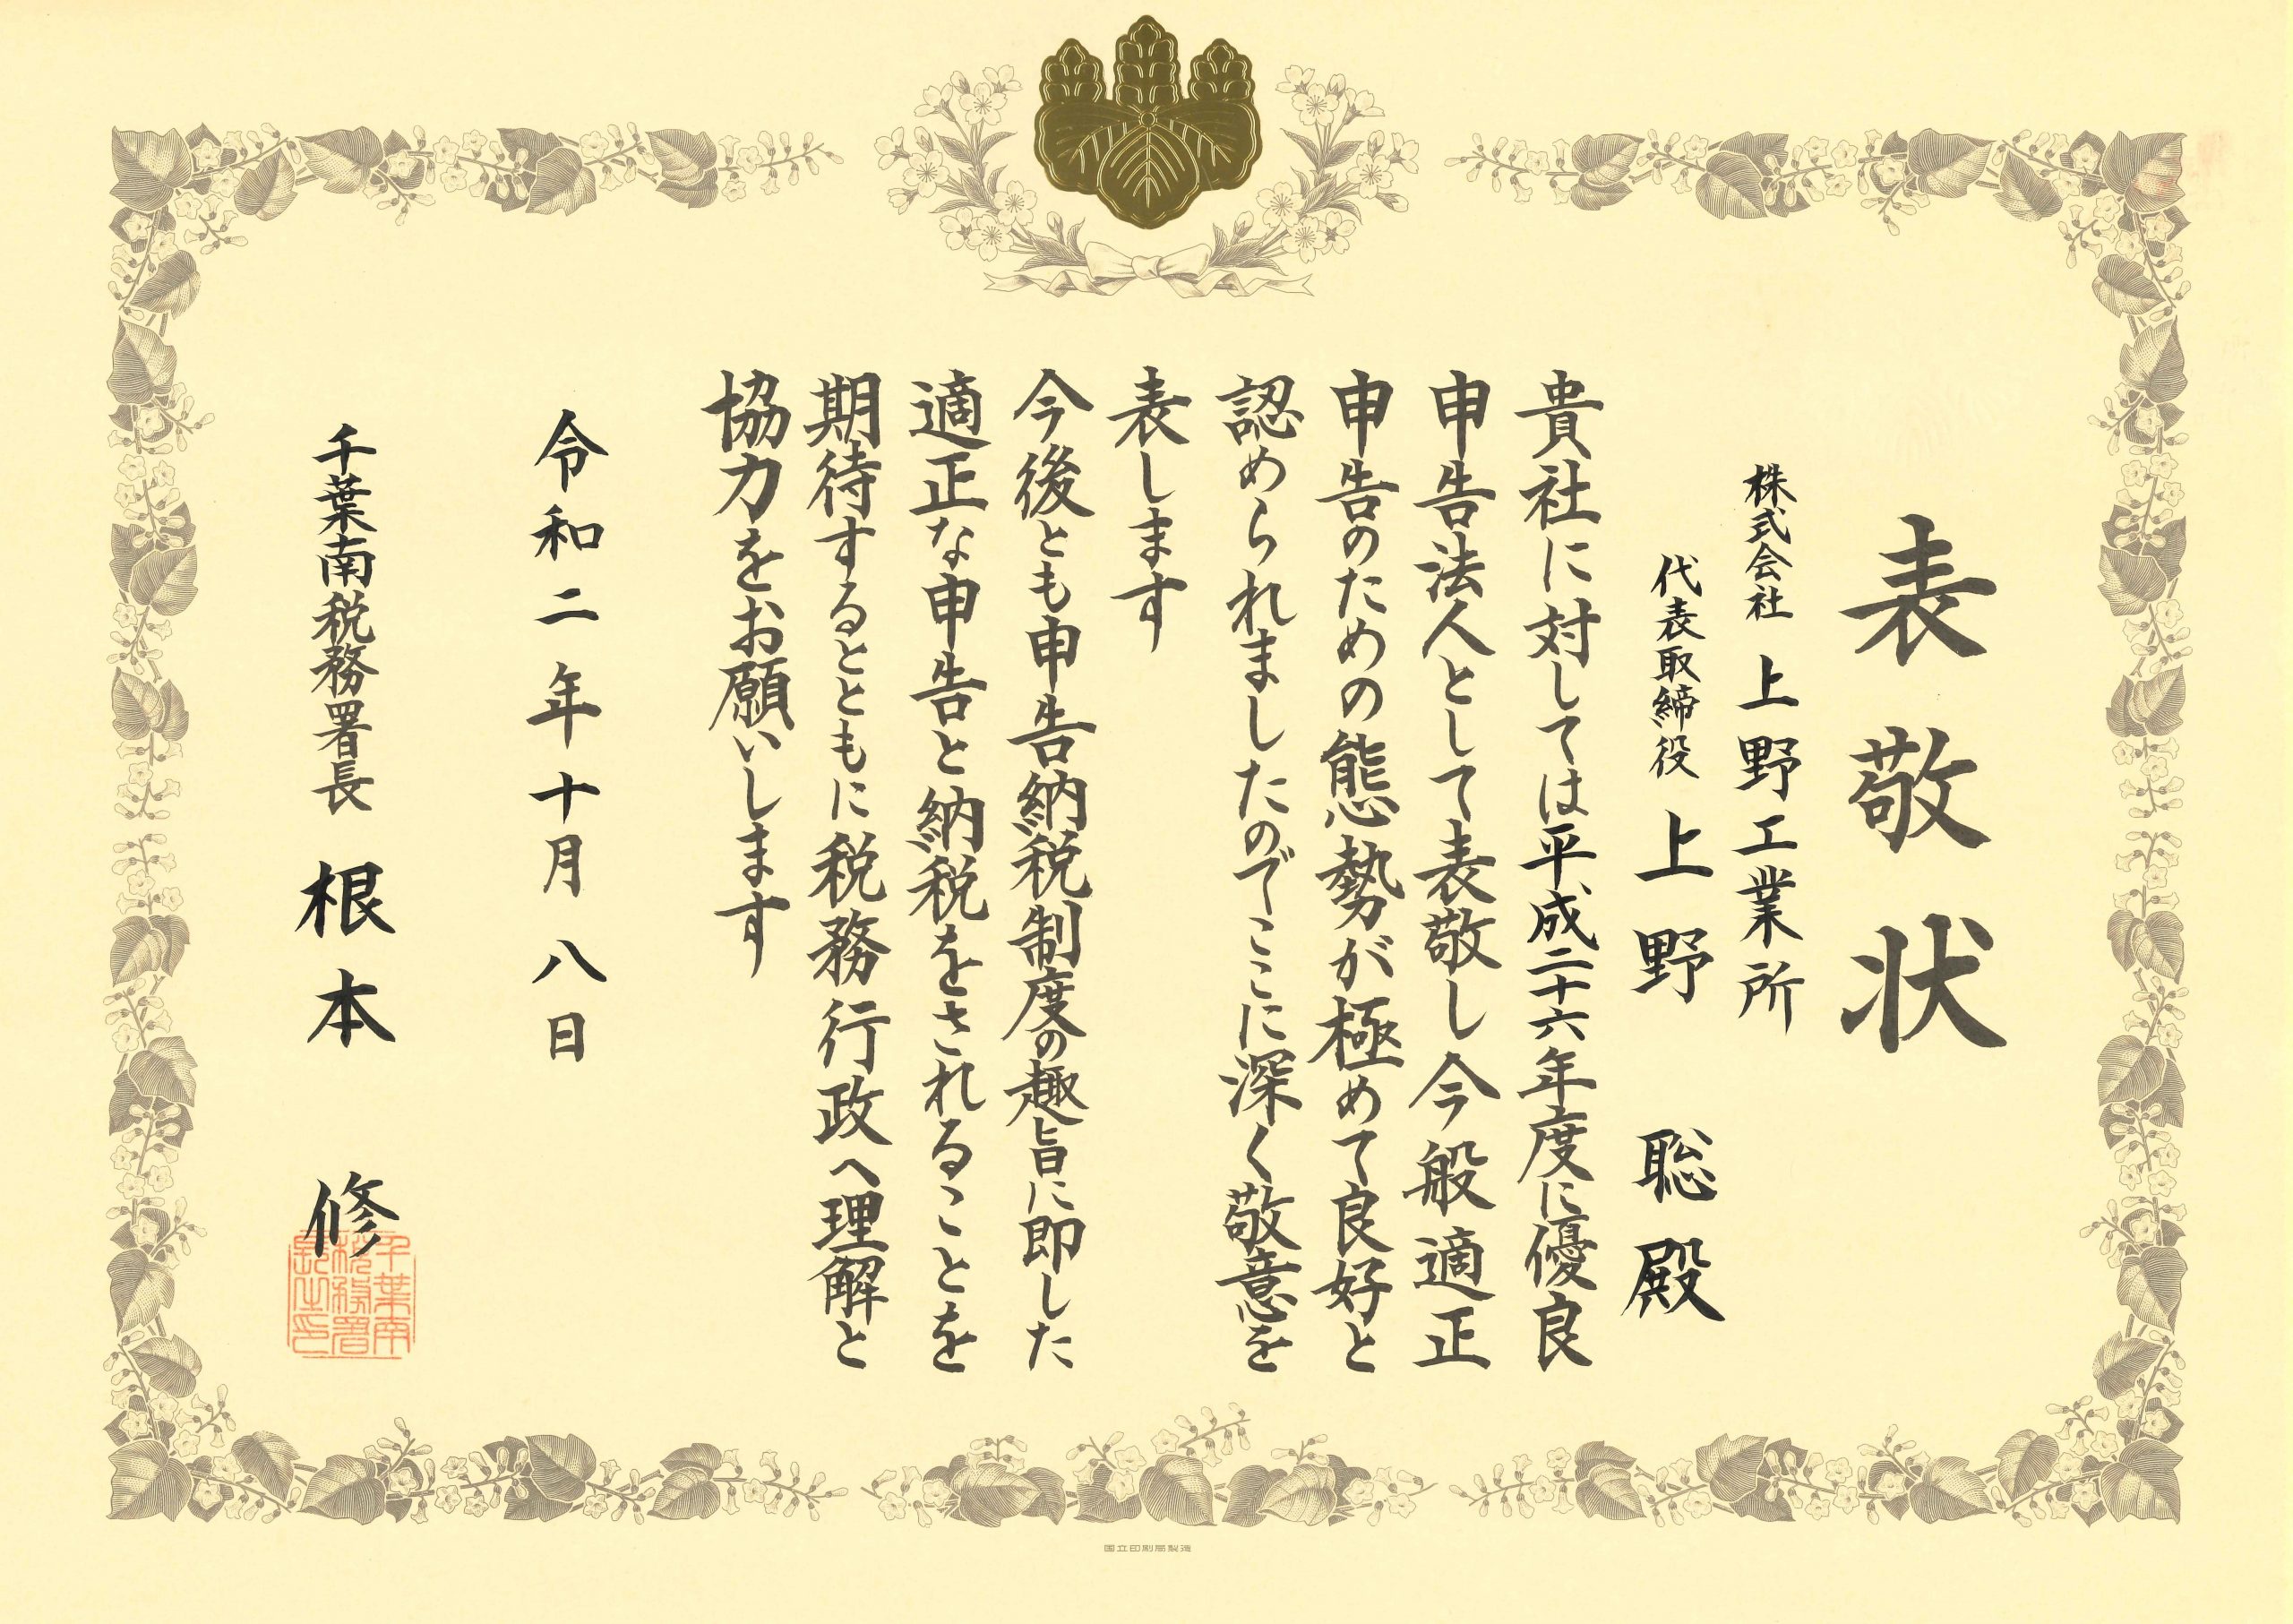 表敬状
株式会社 上野工業所
代表取締役 上野 聡 殿
貴社に対しては平成二十六年度に優良
申告法人として表敬し今般適正
申告のための態勢が極めて良好と
認められましたのでここに深く敬意を
表します
今後とも申告納税制度の趣旨に即した
適正な申告と納税をされることを
期待するとともに税務行政へ理解と
協力をお願いします
令和二年十月八日
千葉南税務署長 根本 修
千葉南
税務署
長之印
国立印刷局製造